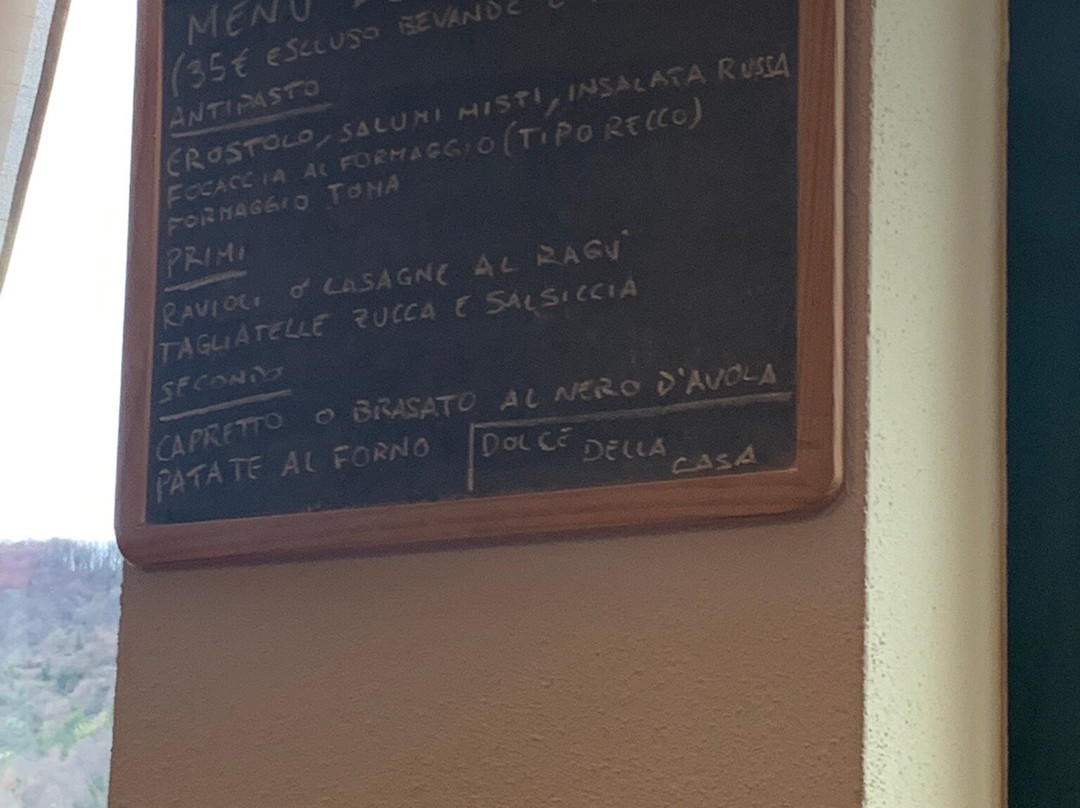 MENÙ
(35€ ESCLUSO BEVANDE E
ANTIPASTO
CROSTOLO, SALUMI MISTI, INSALATA RUSSA
FOCACCIA AL FORMAGGIO (TIPO RECCO)
FORMAGGIO TOMA
PRIMI
RAVIOLI O LASAGNE AL RAGU'
TAGLIATELLE ZUCCA E SALSICCIA
SECONDO
CAPRETTO O BRASATO AL NERO D'AVOLA
PATATE AL FORNO
DOLCE DELLA CASA